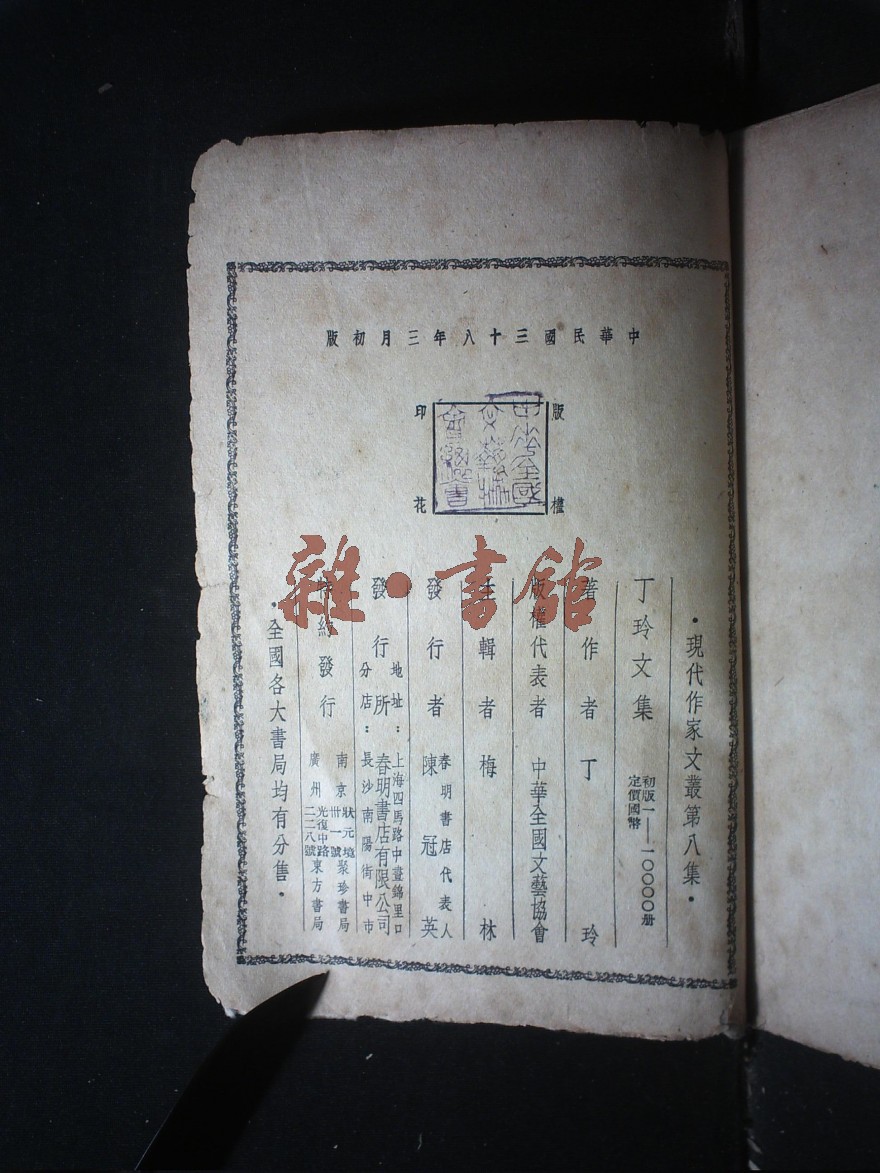 中華民國三十八年三月初版
版權
印花
中華全國文藝協
雜·書館
·現代作家文叢第八集·
丁玲文集
初版一——一〇〇〇〇册
定價國幣
著作者 丁玲
版權代表者 中華全國文藝協會
主輯者 梅林
發行者 春明書店代表人 陳冠英
發行所 春明書店有限公司
地址：上海四馬路中晝錦里口
分店：長沙南陽街中市
特約發行
南京狀元境卅一號聚珍書局
廣州光復中路二二八號東方書局
·全國各大書局均有分售·